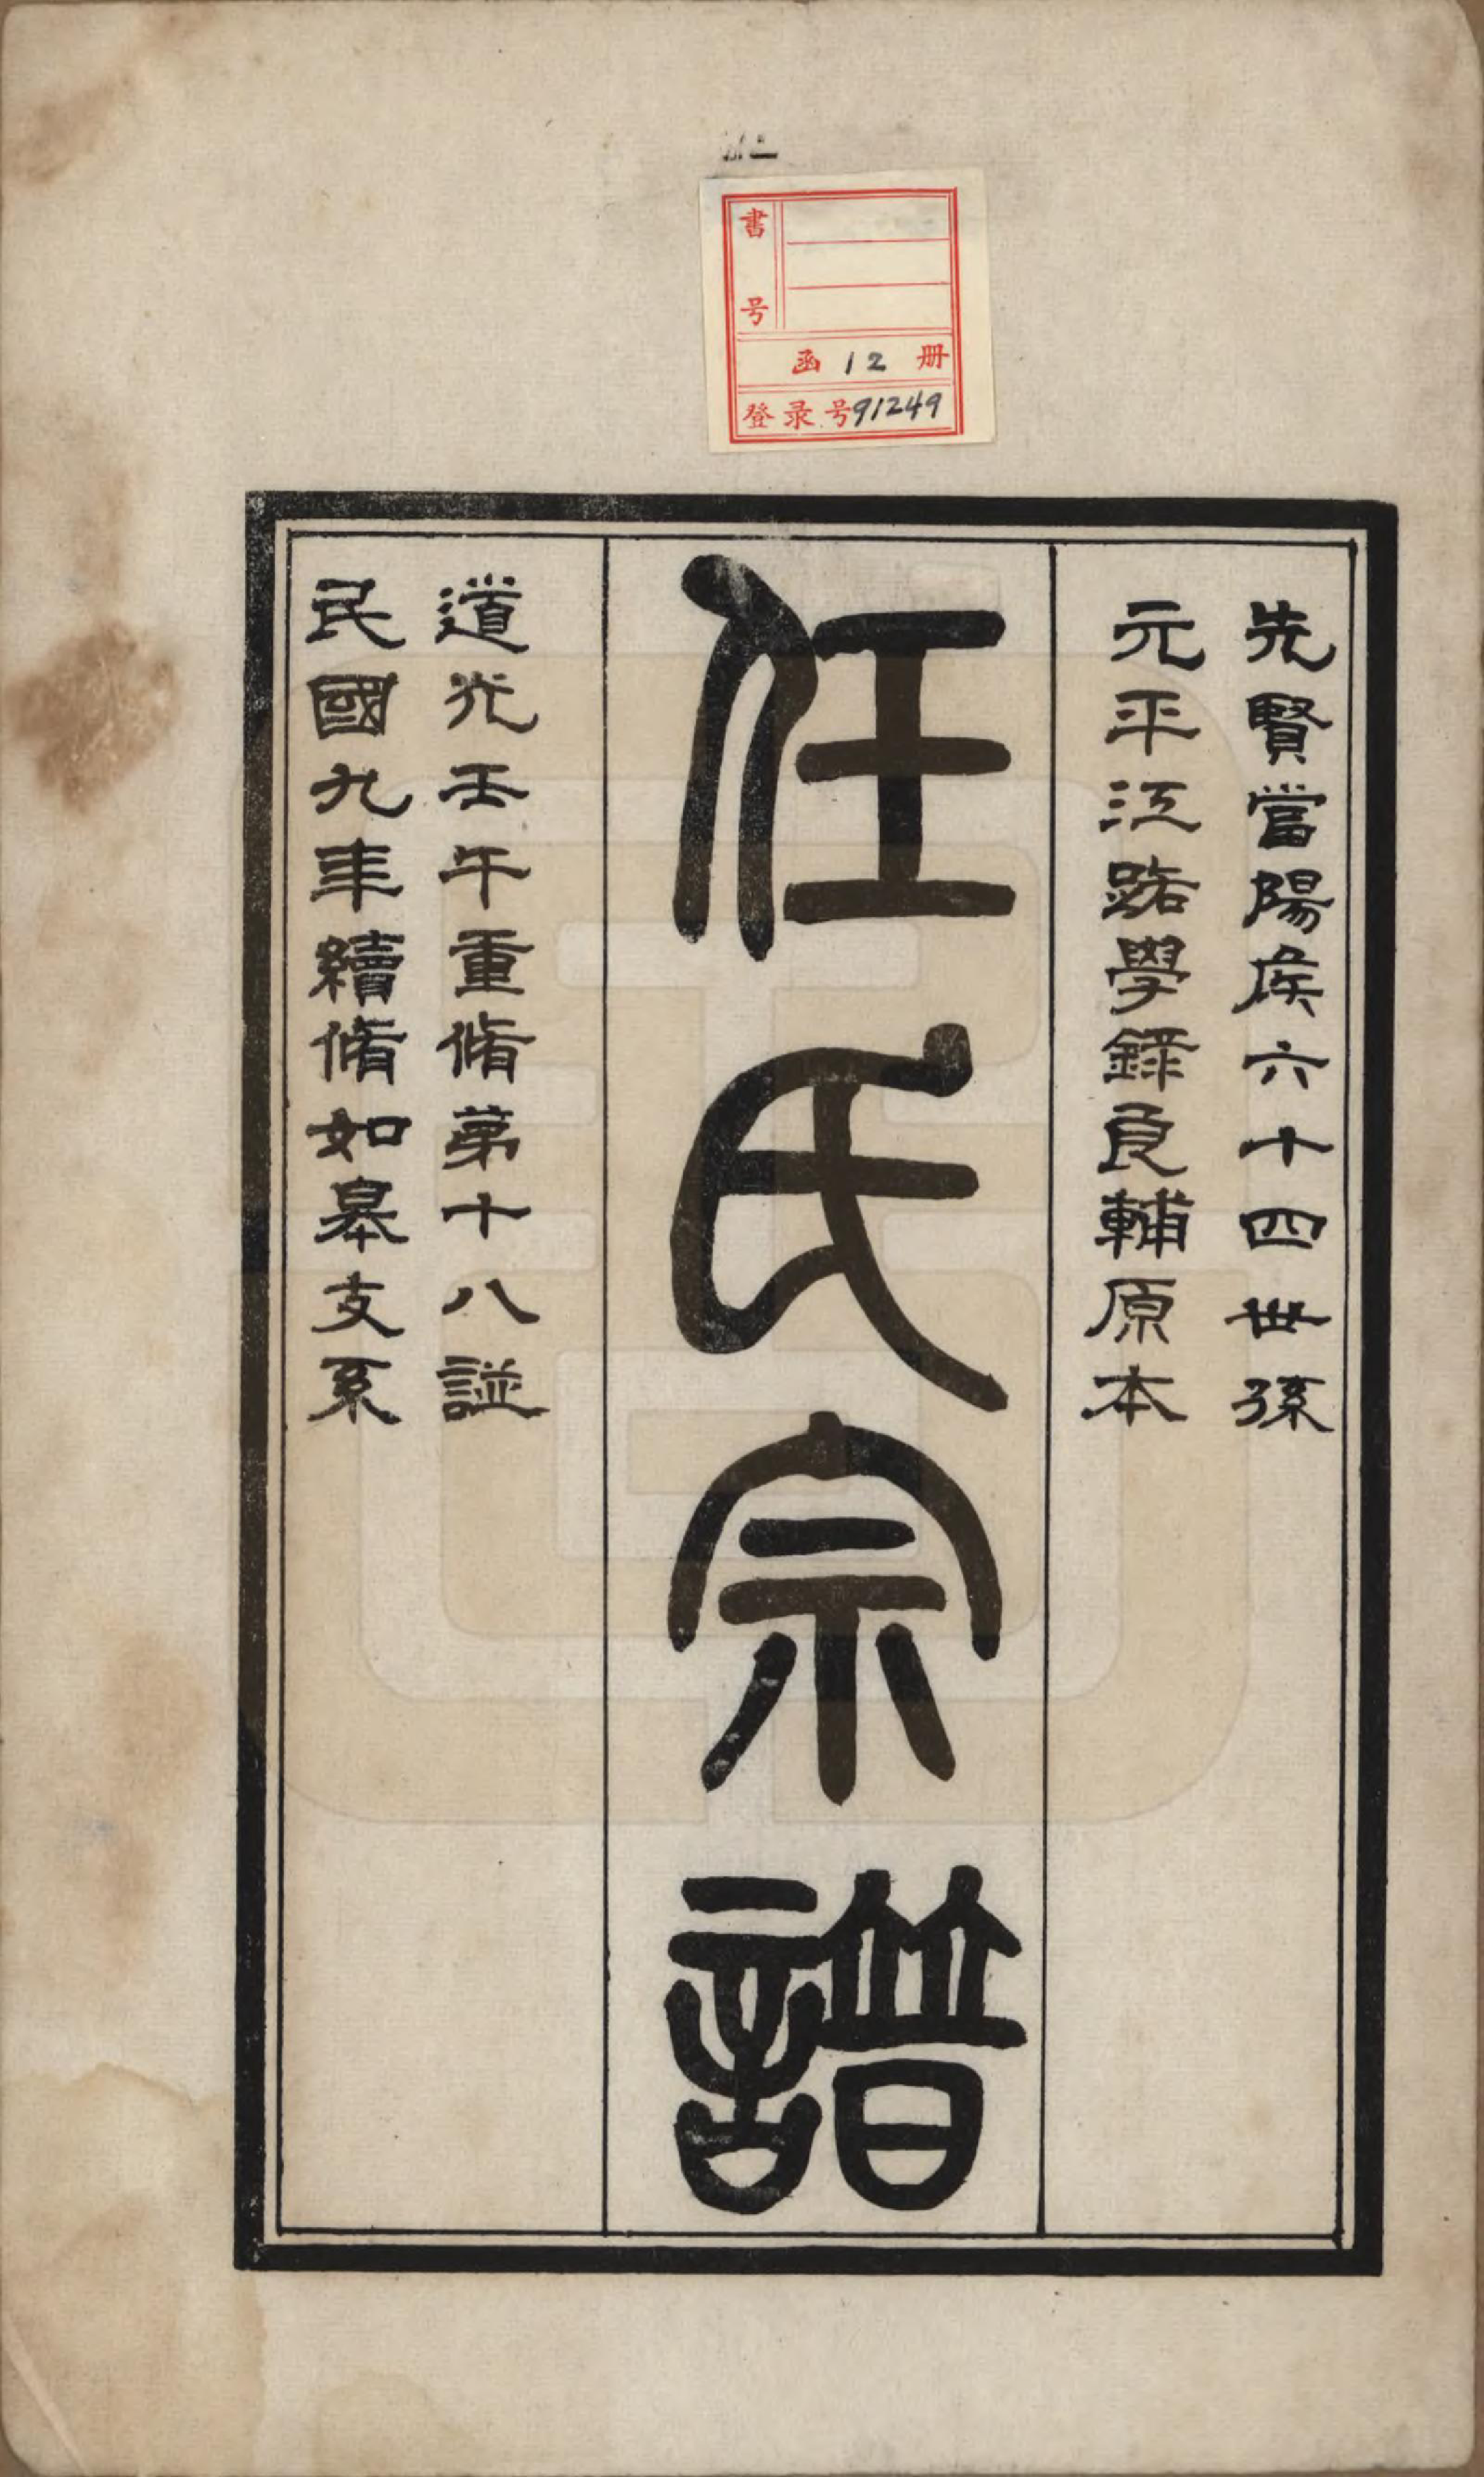 書号
函 12 册
登录号91249
先賢當陽侯六十四世孫
元平江路學錄良輔原本
任氏宗譜
道光壬午重脩第十八譜
民國九年續脩如皋支系